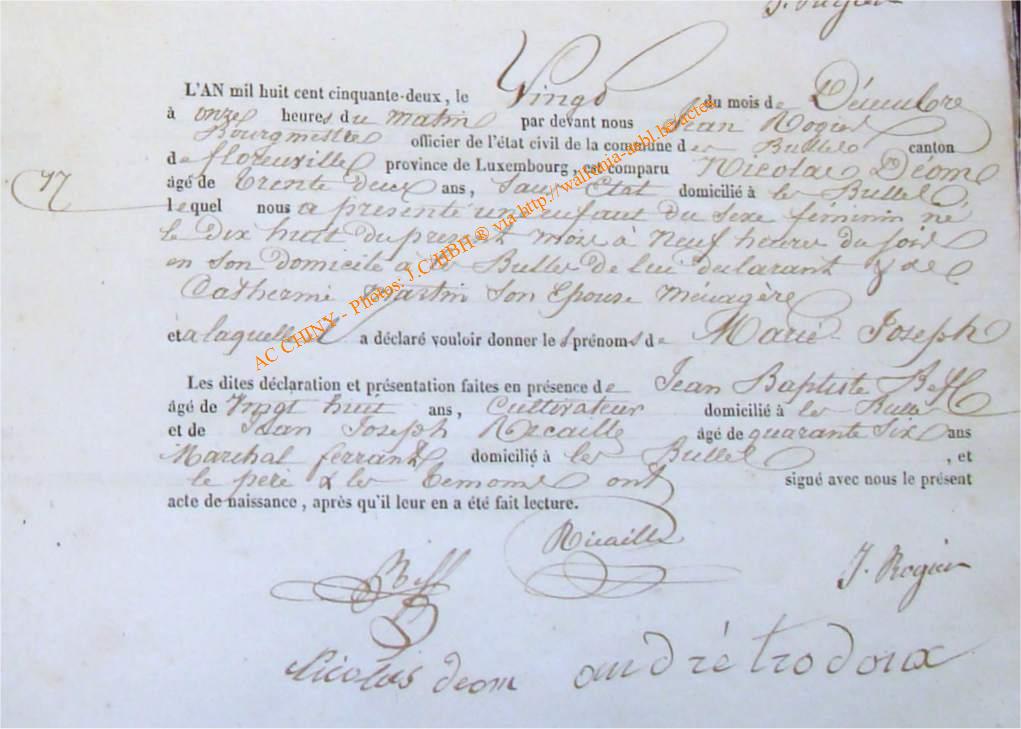 J. Rogier
L'AN mil huit cent cinquante-deux, le Vingt du mois de Décembre
à onze heures du matin par devant nous Jean Rogier
Bourgmestre officier de l'état civil de la commune des Bulles canton
de florenville province de Luxembourg, est comparu Nicolas Déom
77
âgé de trente deux ans, sans Etat domicilié à les Bulles
lequel nous a présenté un enfant du sexe féminin né
le dix huit du présent mois à neuf heures du soir
en son domicile a les Bulles de lui déclarant & de
Catherine Martin son Epouse Ménagère
et a laquelle il a déclaré vouloir donner les prénoms de Marie Joseph
Les dites déclaration et présentation faites en présence de Jean Baptiste
âgé de vingt huit ans, Cultivateur domicilié à les Bulles
et de Jean Joseph Ricaille âgé de quarante six ans
Marechal ferrant domicilié à les Bulles, et
le père & les temoins ont signé avec nous le présent
acte de naissance, après qu'il leur en a été fait lecture.
Ricaille
J. Rogier
Nicolas deom andré trodoux
AC CHINY - Photos: J.C/HBH ® via http://wallonia-asbl.be/actes